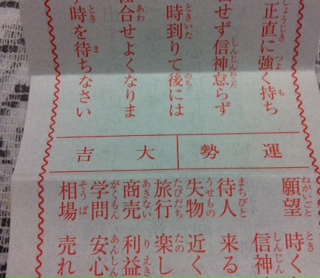 正直に強く持ち
せず信神怠らず
時到りて後には
合せよくなりま
時を待ちなさい
運勢
大吉
願望 時く
信神
待人 来る
失物 近く
旅行 楽し
商売 利益
学問 安心
相場 売れ